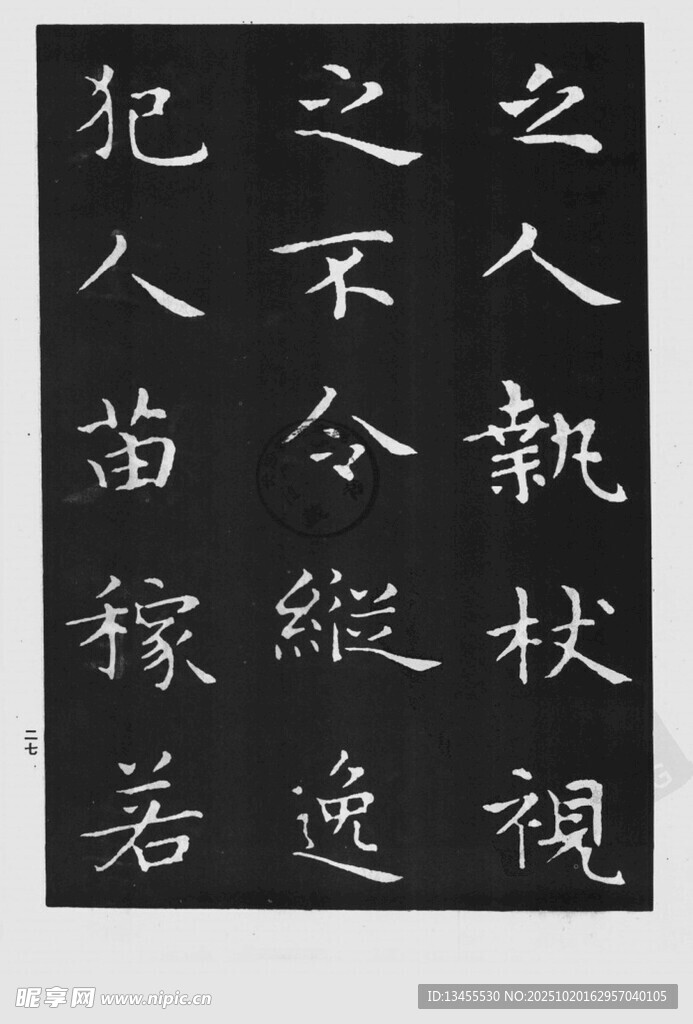 之人執杖視
之不令縱逸
犯人苗稼若
二七
昵享网 www.nipic.cn
ID:13455530 NO:20251020162957040105